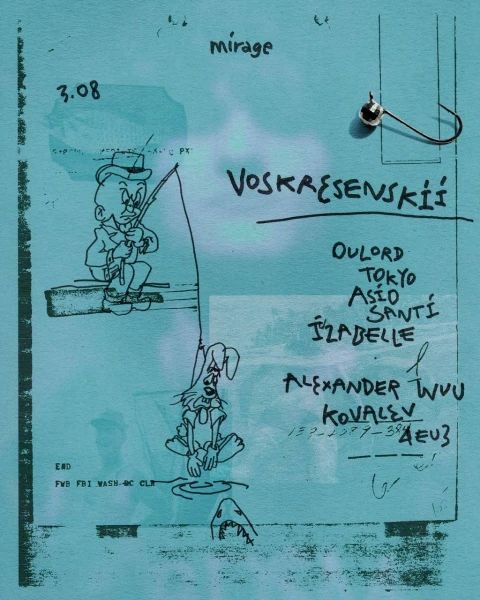 mirage
3.08
VOSKRESENSKÍÍ
OULORD
TOKYO
ASÍO
SANTÍ
ÍZABELLE
ALEXANDER WVU
KOVALEV
4EU3
EØD
FWB FBI WASH DC CLR